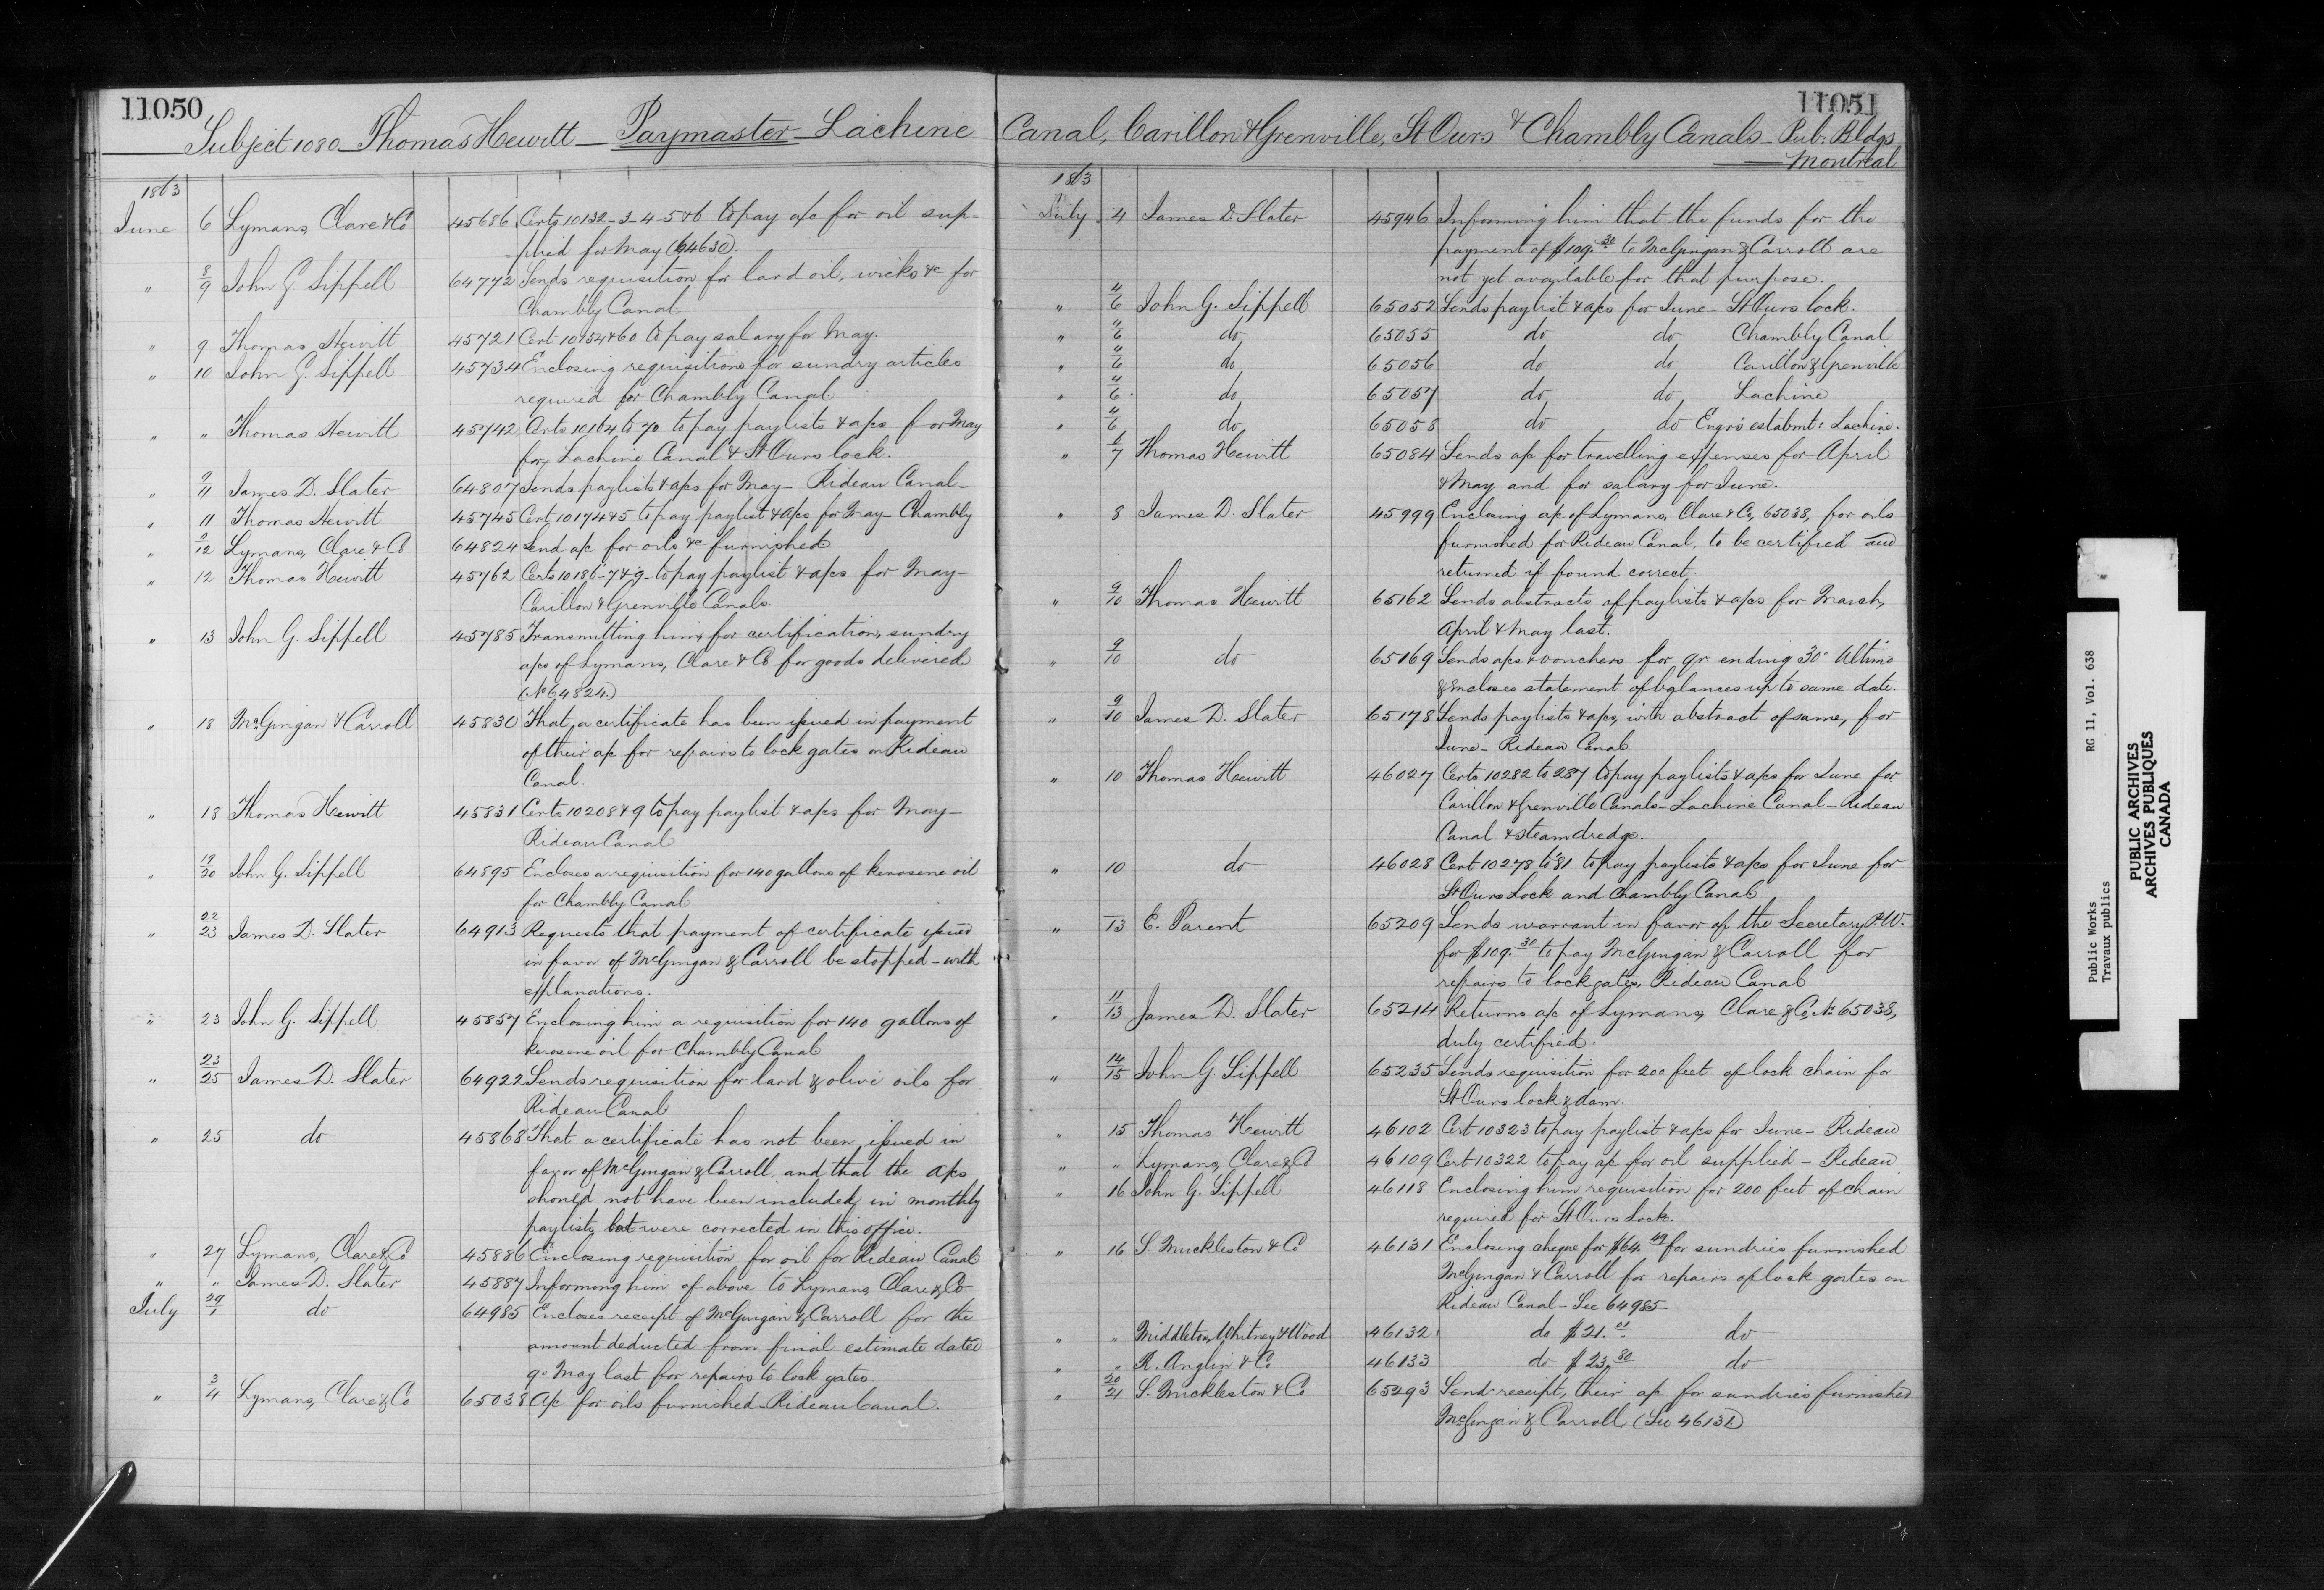 11050
Subject 1080 Thomas Hewitt — Paymaster — Lachine
1863
June 6 Lymans, Clare & Co 45686 Certs 10132-3-4-5&6 to pay a/c for oil sup-
plied for May (64630).
" 8/9 John G. Sippell 64772 Sends requisition for lard oil, wicks &c for
Chambly Canal
" 9 Thomas Hewitt 45721 Cert 10154&60 to pay salary for May.
" 10 John G. Sippell 45734 Enclosing requisitions for sundry articles
required for Chambly Canal
" " Thomas Hewitt 45742 Certs 10164 to 70 to pay paylists & a/cs for May
for Lachine Canal & St Ours lock.
" 9/11 James D. Slater 64807 Sends paylists & a/cs for May — Rideau Canal —
" 11 Thomas Hewitt 45745 Cert 10174&5 to pay paylist & a/cs for May — Chambly
" 9/12 Lymans, Clare & Co 64824 Send a/c for oils &c furnished
" 12 Thomas Hewitt 45762 Certs 10186-7&9 to pay paylist & a/cs for May —
Carillon & Grenville Canals.
" 13 John G. Sippell 45785 Transmitting him for certification, sundry
a/cs of Lymans, Clare & Co for goods delivered
(No 64824.)
" 18 McGungan & Carroll 45830 That, a certificate has been issued in payment
of their a/c for repairs to lock gates on Rideau
Canal.
" 18 Thomas Hewitt 45831 Certs 10208&9 to pay paylist & a/cs for May —
Rideau Canal
" 19/20 John G. Sippell 64895 Encloses a requisition for 140 gallons of kerosene oil
for Chambly Canal
" 22/23 James D. Slater 64913 Requests that payment of certificate issued
in favor of McGungan & Carroll be stopped — with
explanations.
" 23 John G. Sippell 45857 Enclosing him a requisition for 140 gallons of
kerosene oil for Chambly Canal
" 23/25 James D. Slater 64922 Sends requisition for lard & olive oils for
Rideau Canal
" 25 do 45868 That a certificate has not been issued in
favor of McGungan & Carroll, and that the a/cs
should not have been included in monthly
paylists, but were corrected in this office.
" 27 Lymans, Clare & Co 45886 Enclosing requisition for oil for Rideau Canal
" " James D. Slater 45887 Informing him of above to Lymans, Clare & Co
July 29/1 do 64985 Encloses receipt of McGungan & Carroll for the
amount deducted from final estimate dated
9o May last for repairs to lock gates.
" 3/4 Lymans, Clare & Co 65038 A/c for oils furnished — Rideau Canal.
11051
Canal, Carillon & Grenville, St Ours & Chambly Canals — Pub. Bldgs
Montreal
1863
July 4 James D Slater 45946 Informing him that the funds for the
payment of $109.30 to McGungan & Carroll are
not yet available for that purpose.
" 4/6 John G. Sippell 65052 Sends paylist & a/cs for June — St Ours lock.
" 4/6 do 65055 do do Chambly Canal
" 4/6 do 65056 do do Carillon & Grenville
" 4/6 do 65057 do do Lachine
" 4/6 do 65058 do do Engrs estabmt: Lachine.
" 6/7 Thomas Hewitt 65084 Sends a/c for travelling expenses for April
& May and for salary for June.
" 8 James D. Slater 45999 Enclosing a/c of Lymans, Clare & Co, 65038, for oils
furnished for Rideau Canal, to be certified and
returned if found correct.
" 9/10 Thomas Hewitt 65162 Sends abstracts of paylists & a/cs for March,
April & May last.
" 9/10 do 65169 Sends a/cs & vouchers for qr. ending 30o Ultimo
& encloses statement of balances up to same date.
" 9/10 James D. Slater 65178 Sends paylists & a/cs, with abstract of same, for
June — Rideau Canal
" 10 Thomas Hewitt 46027 Certs 10282 to 287 to pay paylists & a/cs for June for
Carillon & Grenville Canals — Lachine Canal — Rideau
Canal & steam dredge.
" 10 do 46028 Cert 10278 to 81 to pay paylists & a/cs for June for
St Ours Lock and Chambly Canal
" 13 E. Parent 65209 Sends warrant in favor of the Secretary P.W.
for $109.30 to pay McGungan & Carroll for
repairs to lock gates, Rideau Canal
" 11/13 James D. Slater 65214 Returns a/c of Lymans, Clare & Co, No 65038,
duly certified.
" 14/15 John G. Sippell 65235 Sends requisition for 200 feet of lock chain for
St Ours lock & dam.
" 15 Thomas Hewitt 46102 Cert 10323 to pay paylist & a/cs for June — Rideau
" " Lymans, Clare & Co 46109 Cert 10322 to pay a/c for oil supplied — Rideau
" 16 John G. Sippell 46118 Enclosing him requisition for 200 feet of chain
required for St Ours Lock.
" 16 S Muckleston & Co 46131 Enclosing cheque for $64.49 for sundries furnished
McGungan & Carroll for repairs of lock gates on
Rideau Canal — See 64985 —
" " Middleton, Whitney & Wood 46132 do $21.01 do
" " R. Anglin & Co 46133 do $23.80 do
" 20/21 S. Muckleston & Co 65293 Send receipt, their a/c for sundries furnished
McGungan & Carroll (See 46131)
Public Works RG 11, Vol. 638
Travaux publics
PUBLIC ARCHIVES
ARCHIVES PUBLIQUES
CANADA